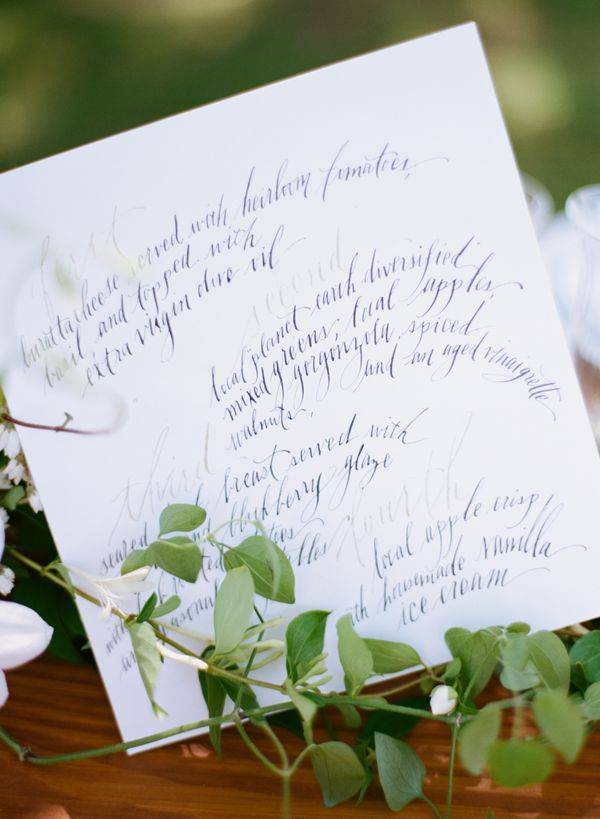 first
burratta cheese served with heirloom tomatoes,
basil and topped with
extra virgin olive oil
second
local planet earth diversified
mixed greens, local apples,
gorgonzola, spiced
walnuts, and an aged vinaigrette
third
breast served with
blackberry glaze
fourth
local apple crisp,
homemade vanilla
ice cream